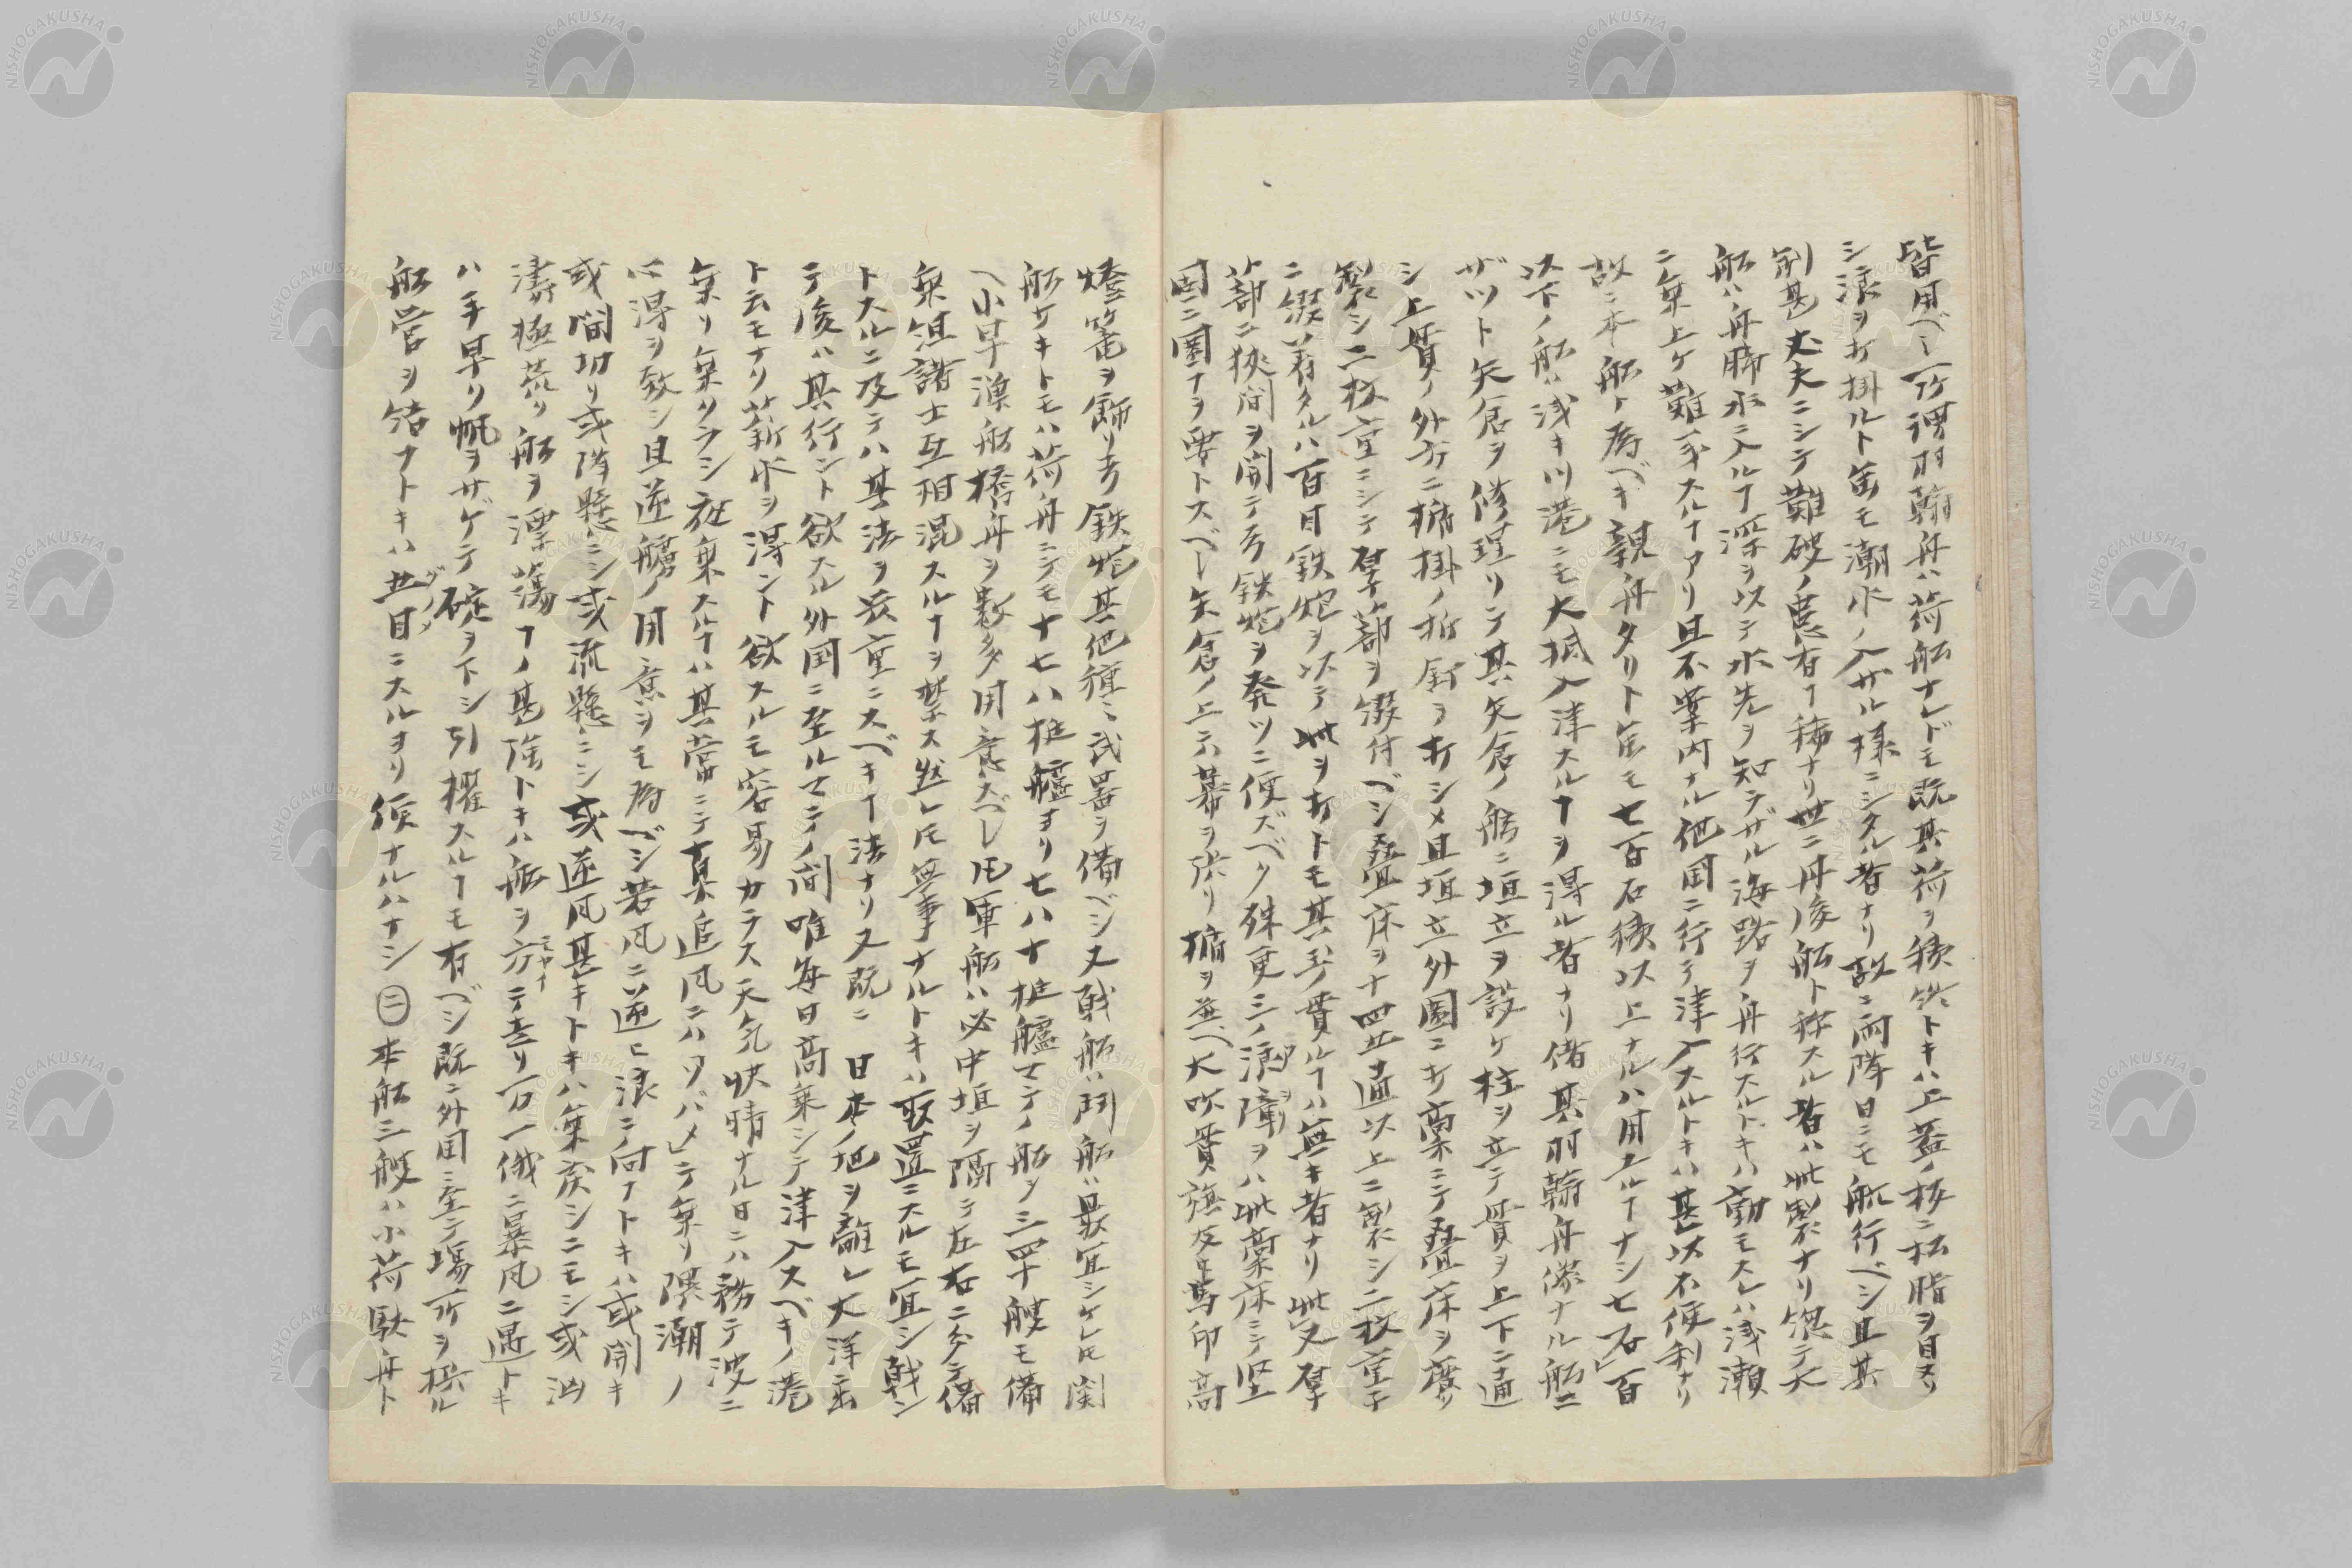 皆用ベシ所謂羽翰舟ハ荷船ナレドモ既其荷ヲ積終トキハ上蓋ノ板ニ松脂ヲ目ヌリ
シ浪ヲ打掛ルト雖モ潮水ノ入ザル様ニシタル者ナリ故ニ雨降日ニモ航行ベシ且其
制甚丈夫ニシテ難破ノ患有丅稀ナリ世ニ丹後船ト称スル者ハ此製ナリ惣テ大
船ハ舟脚水ニ入ル丅深ヲ以テ水先ヲ知ラザル海路ヲ舟行スルトキハ動モスレハ浅瀬
ニ乗上ケ難求スル丅アリ且不案内ナル他国ニ行テ津入スルトキハ甚以不便利ナリ
故ニ本船ト為ベキ親舟タリト雖モ七百石積以上ナルハ用ユル丅ナシ七石百
以下ノ船ハ浅キ川港ニモ大抵入津スル丅ヲ得ル者ナリ偖其羽翰舟様ナル船ニ
ザツト矢倉ヲ修理リテ其矢倉ノ舷ニ垣立ヲ設ケ柱ヲ立テ貫ヲ上下ニ通
シ上貫ノ外方ニ櫓掛ノ折釘ヲ打シメ且垣立外囲ニ打藁ニテ畳床ヲ厚ク
製シ二枚重ニシテ厚蔀ヲ綴付ベシ畳床ヲ十四五通以上ニ製シ二枚重子
ニ綴着タルハ百目鉄炮ヲ以テ此ヲ打トモ其玉ノ貫ル丅ハ無キ者ナリ此又厚
蔀ニ狭間ヲ開テ弓鉄炮ヲ発ツニ便ズベク殊更三ノ浪障ヲハ此藁床ニテ堅
固ニ圍ナヲ要トスベシ矢倉ノ上ニハ幕ヲ張リ櫓ヲ並ヘ大吹貫旗及ヒ馬印高
燈篭ヲ飾リ弓鉄炮其他種ニ武器ヲ備ベシ又戦船ハ関船ハ最宜シケレ𪜈関
船ザキトモハ荷舟ニテモ十七八挺艫ヨリ七八十挺艫マテノ船ヲ三四十艘モ備
ヘ小早漁船橋舟ヲ數多用意スベレ𪜈軍船ハ必中垣ヲ隔テ左右ニ分テ備
乗組諸士互相混スル丅ヲ禁ス然レ𪜈無事ナルトキハ取置ニスルモ宜シ戦ン
トスルニ及テハ其法ヲ厳重ニスベキ丅法ナリ又既ニ日本ノ地ヲ離レ大洋出
テ後ハ其行ント欲スル外国ニ至ルマテノ間唯毎日高乗シテ津入スベキノ港
ト云モナリ薪水ヲ得ント欲スルモ容易カラス天気快晴ナル日ニハ務テ波ニ
乗リ乗リラシ在乗スル丅ハ其常ニテ真追凡ニハワバメテ乗リ隈潮ノ
心得ヲ致シ且逆艪ノ用意ヲモ為ベシ若凡ニ逆ヒ浪ニ向ナトキハ或開キ
或間切リ或降懸ニシ或流懸ニシ或逆凡甚キトキハ乗戻シニモシ或汹
濤極荒リ船ヲ漂蕩丅ノ甚強トキハ舷ヲ方テ走リ万一俄ニ暴凡ニ遇トキ
ハ手早リ帆ヲサゲテ碇ヲ下シ引擢スル丅モ有ベシ既ニ外国ニ至テ場所ヲ撰ル
船営ヲ結ナトキハ五目ニスルヨリ便ナルハナシ㊁本船三艘ハ小荷駄舟ト